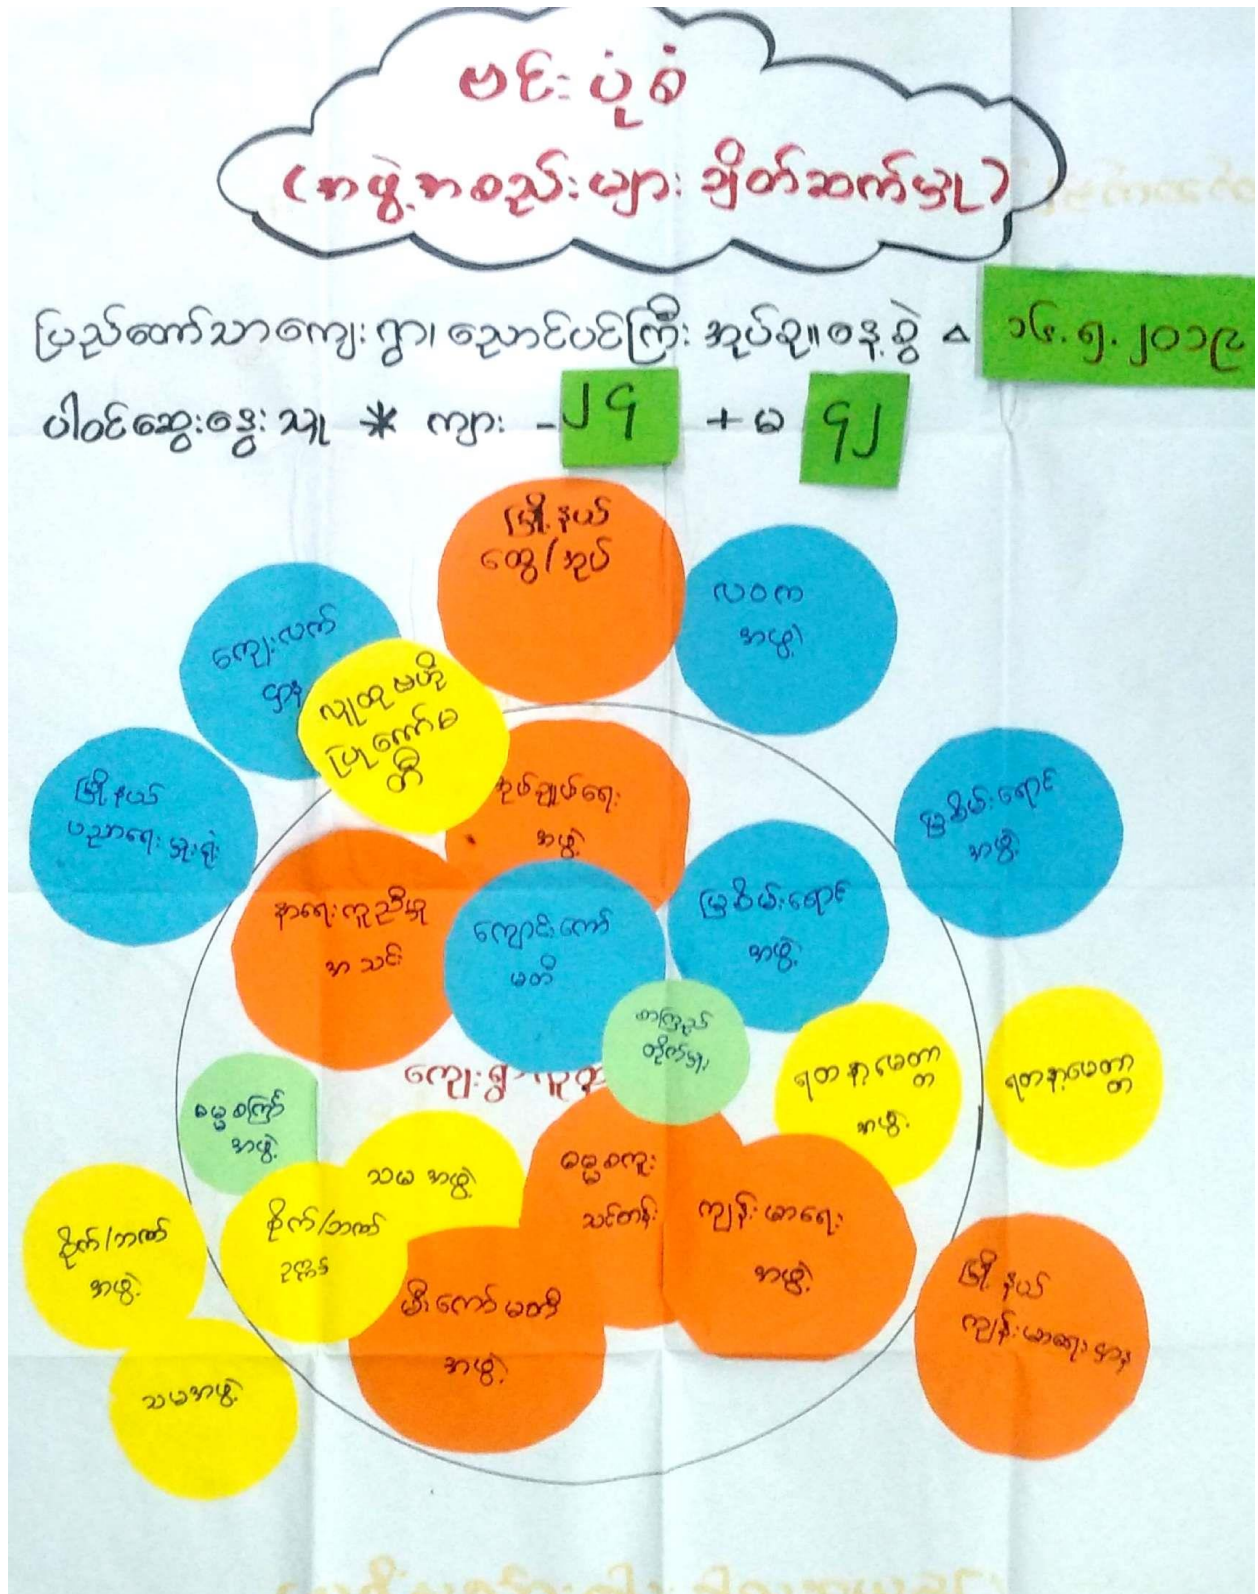 ဗင်းပုံစံ
(အဖွဲ့အစည်းများ ချိတ်ဆက်မှု)
ပြည်တော်သာကျေးရွာ၊ ညောင်ပင်ကြီး အုပ်စု။ နေ့စွဲ
၁၆.၅.၂၀၁၉
ပါဝင်ဆွေးနွေးသူ * ကျား - ၂၄ + မ ၄၂
မြို့နယ်
ထွေ/အုပ်
လဝက
အဖွဲ့
ကျေးလက်
ဌာန
လူထုဗဟို
ပြုကော်မ
တီ
မြို့နယ်
ပညာရေးမှူးရုံး
အုပ်ချုပ်ရေး
အဖွဲ့
မြစိမ်းရောင်
အဖွဲ့
နာရေးကူညီမှု
အသင်း
ကျောင်းကော်
မတီ
မြစိမ်းရောင်
အဖွဲ့
စာကြည့်
တိုက်မှူး
ကျေးရွာ
ရတနာ့မေတ္တာ
အဖွဲ့
ရတနာ့မေတ္တာ
ဓမ္မစကြာ
အဖွဲ့
သမ အဖွဲ့
ဓမ္မစကူး
သင်တန်း
ကျန်းမာရေး
အဖွဲ့
စိုက်/ဘဏ်
ဥက္ကဋ္ဌ
စိုက်/ဘဏ်
အဖွဲ့
မီးကော်မတီ
အဖွဲ့
မြို့နယ်
ကျန်းမာရေးဌာန
သမအဖွဲ့